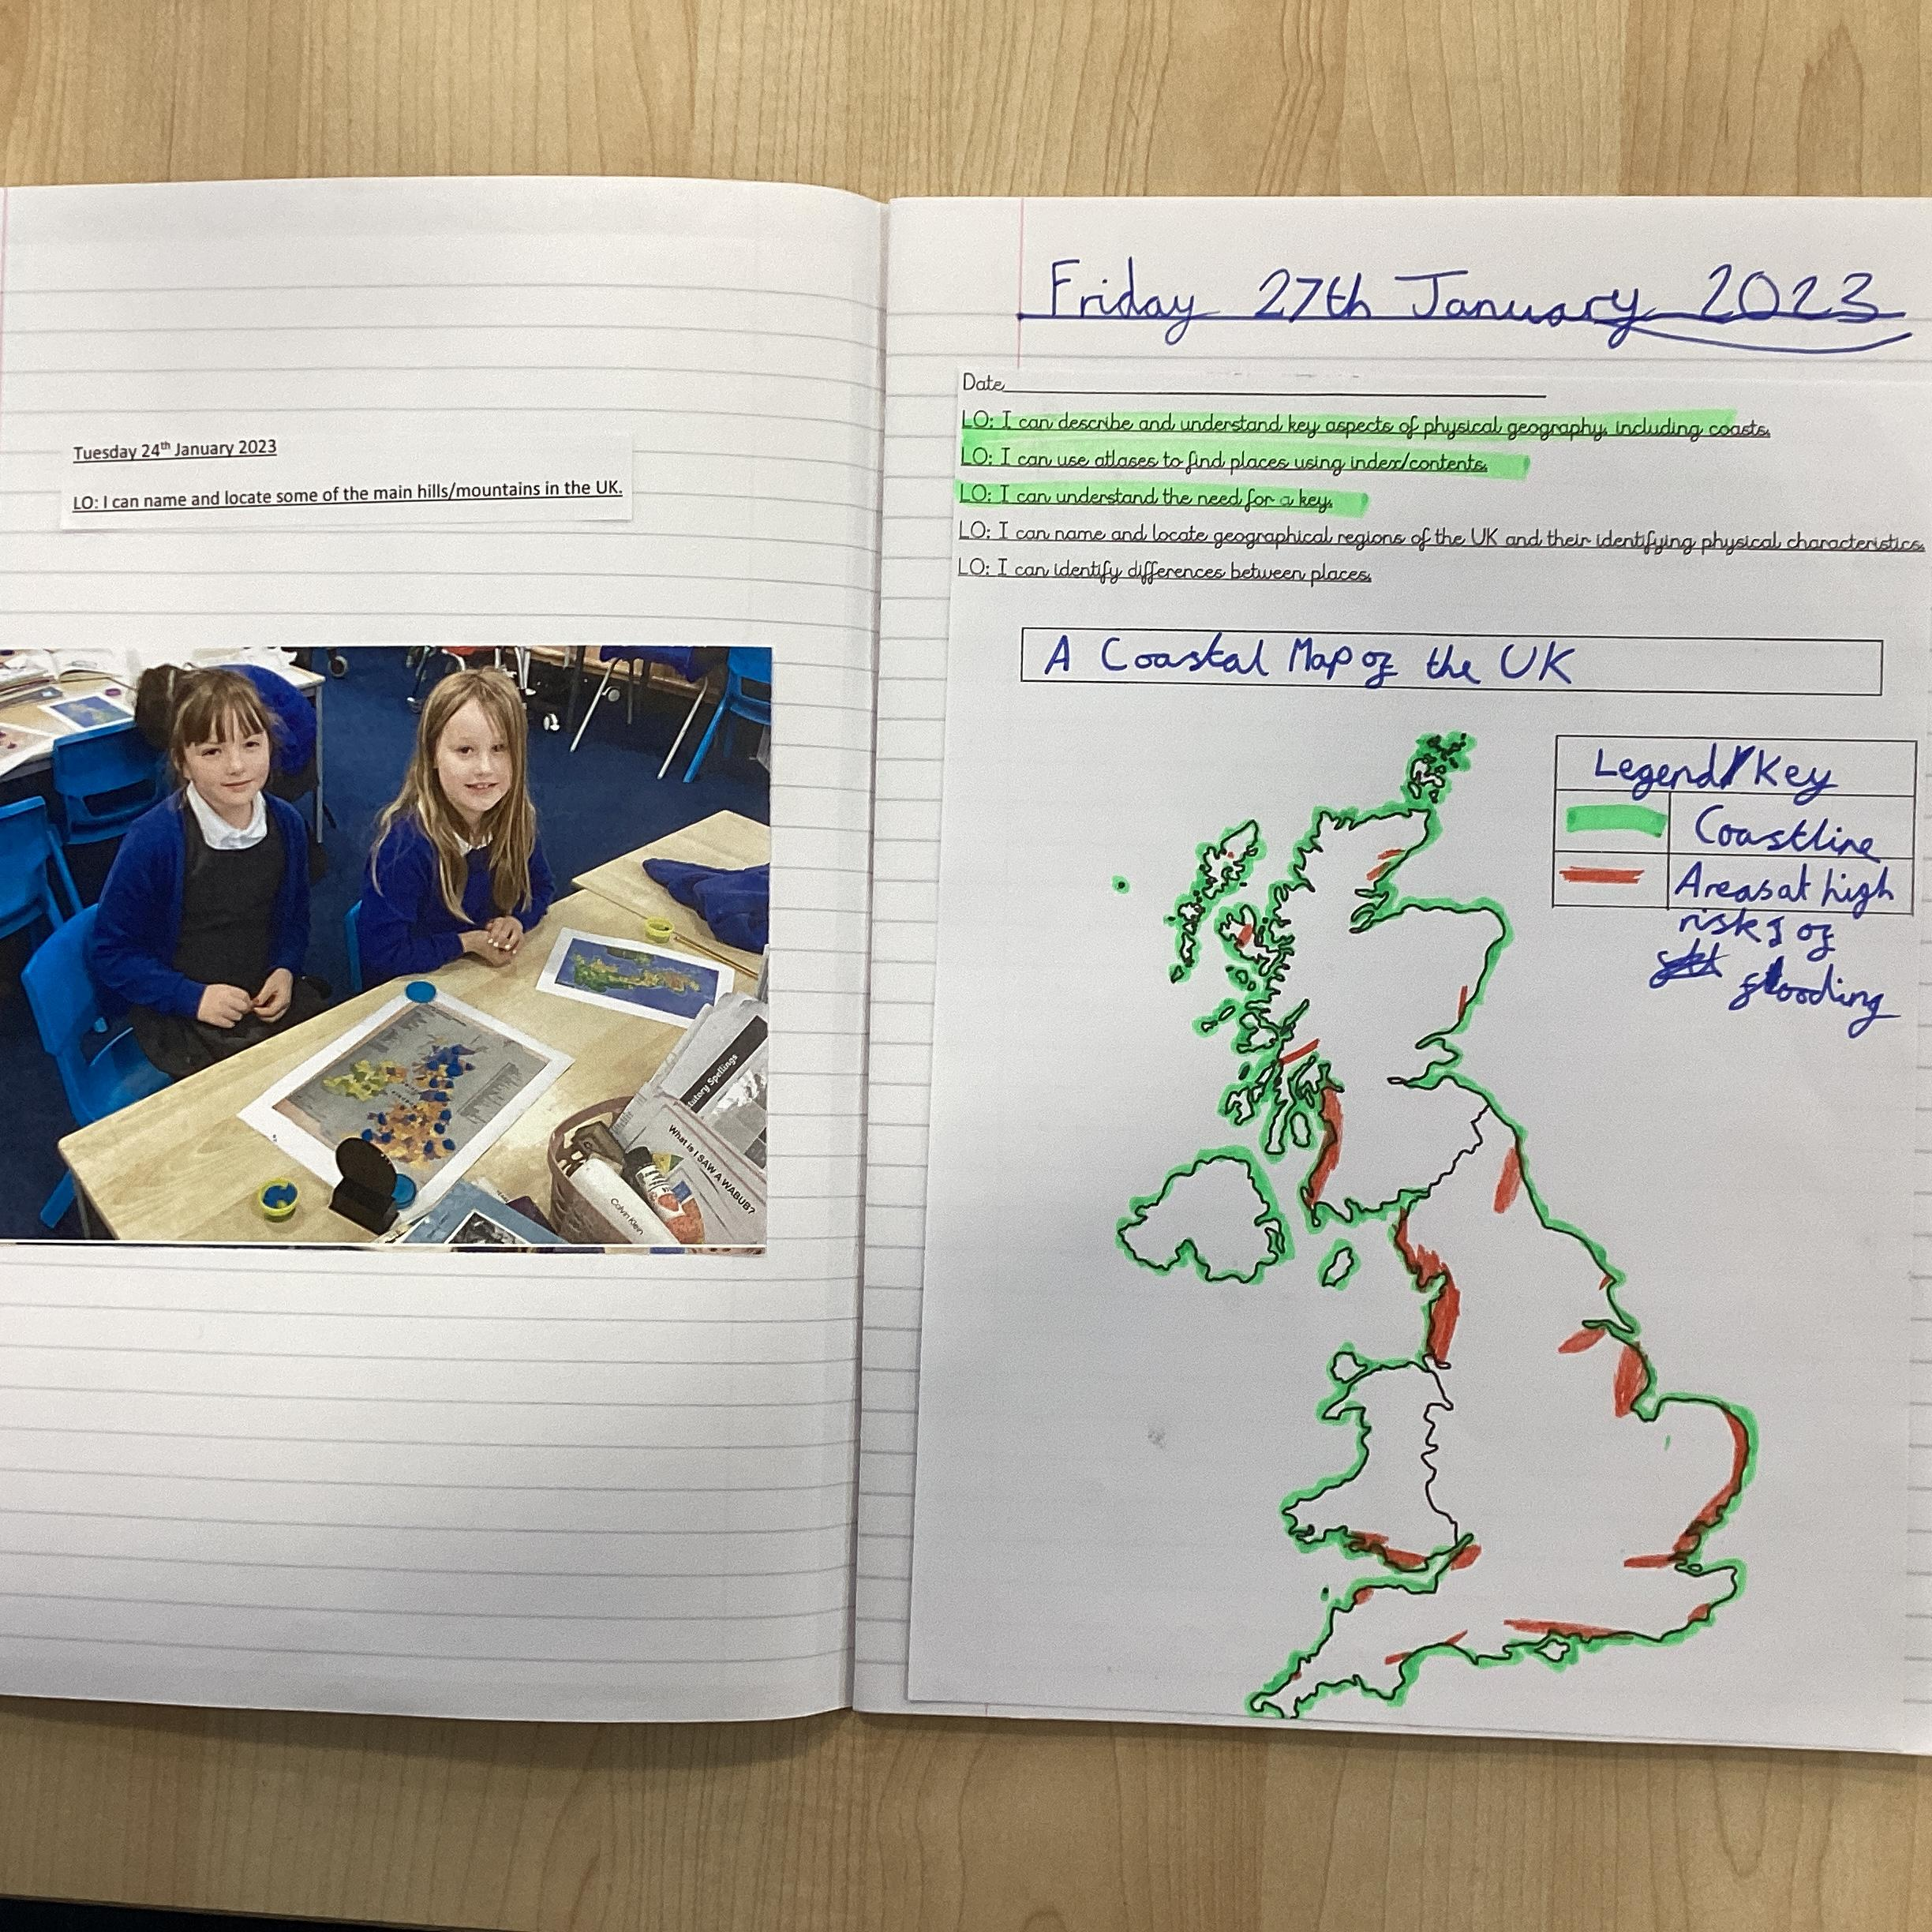 Tuesday 24th January 2023
LO: I can name and locate some of the main hills/mountains in the UK.
tutory Spellings
What is I SAW A WABUB?
Calvin Klein
Friday 27th January 2023
Date
LO: I can describe and understand key aspects of physical geography, including coasts.
LO: I can use atlases to find places using index/contents.
LO: I can understand the need for a key.
LO: I can name and locate geographical regions of the UK and their identifying physical characteristics.
LO: I can identify differences between places.
A Coastal Map of the UK
Legend/Key
Coastline
Areas at high
risk of
flooding